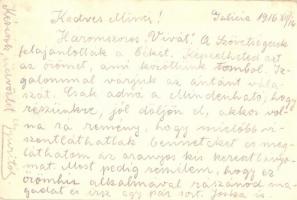 Kedves Minci! Galicia 1916 XII/14
Háromszoros Vivát! A Szövetségesek
felajánlották a békét. Képzelheted azt
az örömet, ami közöttünk tombol. Iz-
galommal várjuk az antánt vála-
szát. Csak adná a Mindenható, hogy
részünkre, jól dőljön el, akkor vol-
na rá remény, hogy mielőbb vi-
szontláthatlak benneteket és meg-
láthatom az aranyos kis keresztlányo-
mat. Most pedig remélem, hogy ez
örömhír alkalmával rászánod ma-
gadat és írsz egy pár sort. Jóska is.
Kézcsók